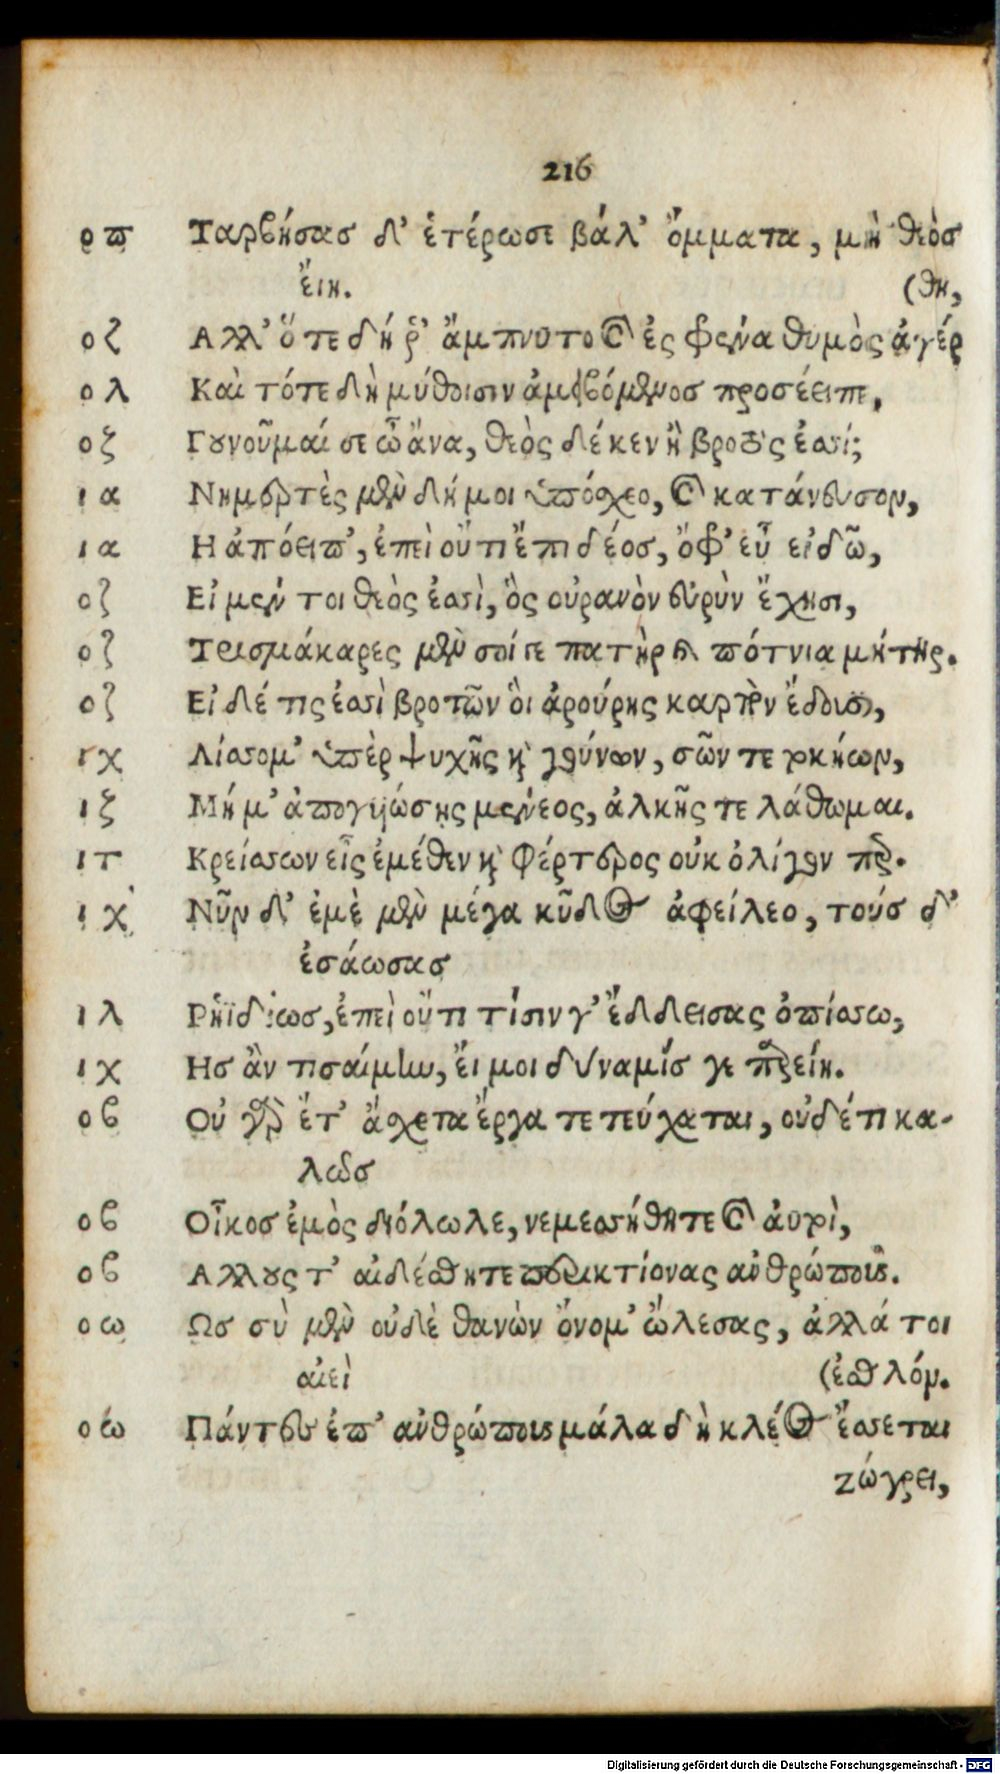 216
ρ π Ταρβήσασ δ' ἑτέρωσε βάλ' ὄμματα, μὴ θεὸσ
ἔιη. (θη,
ο ζ Αλλ' ὅτε δή ῥ' ἄμπνυτο καὶ ἐς φρένα θυμὸς ἀγέρ
ο λ Καὶ τότε δὴ μύθοισιν ἀμειβόμενοσ προσέειπε,
ο ζ Γουνοῦμαί σε ὦ ἄνα, θεὸς δέ κεν ἢ βροτός ἐστί;
ι α Νημερτὲς μὲν δή μοι ὑπόσχεο, καὶ κατάνευσον,
ι α Η ἀπόειπ', ἐπεὶ οὔτι ἔπι δέος, ὄφ' εὖ εἰδῶ,
ο ζ Εἰ μέν τοι θεὸς ἐστὶ, ὃς οὐρανὸν εὐρὺν ἔχησι,
ο ζ Τρισμάκαρες μὲν σοί γε πατὴρ καὶ πότνια μήτηρ.
ο ζ Εἰ δέ τις ἐστὶ βροτῶν ὃι ἀρούρης καρπὸν ἔδουσι,
ι χ Λίασομ' ὑπὲρ ψυχῆς καὶ γούνων, σῶν τε τοκήων,
ι ξ Μή μ' ἀπογυιώσης μένεος, ἀλκῆς τε λάθωμαι.
ι τ Κρείασων εἷς ἐμέθεν καὶ φέρτερος οὐκ ὀλίγον περ.
ι χ Νῦν δ' ἐμὲ μὲν μέγα κῦδος ἀφείλεο, τούσ δ'
ἐσάωσας
ι λ Ρηϊδίωσ, ἐπεὶ οὔτι τίσιν γ' ἔδδεισας ὀπίσσω,
ι χ Ησ ἂν τισαίμην, ἔι μοι δύναμίσ γε παρείη.
ο β Οὐ γὰρ ἔτ' ἄσχετα ἔργα τετεύχαται, οὐδέτι κα-
λῶσ
ο β Οἶκοσ ἐμὸς διόλωλε, νεμεσήθητε καὶ ἀυτοὶ,
ο β Αλλους τ' αἰδέσθητε περικτίονας ἀνθρώπους.
ο ω Ωσ σὺ μὲν οὐδὲ θανὼν ὄνομ' ὤλεσας, ἀλλά τοι
αἰεὶ (ἐσθλόν.
ο ω Πάντας ἐπ' ἀνθρώπους μάλα δὴ κλέος ἔσσεται
ζώγρει,
Digitalisierung gefördert durch die Deutsche Forschungsgemeinschaft - DFG